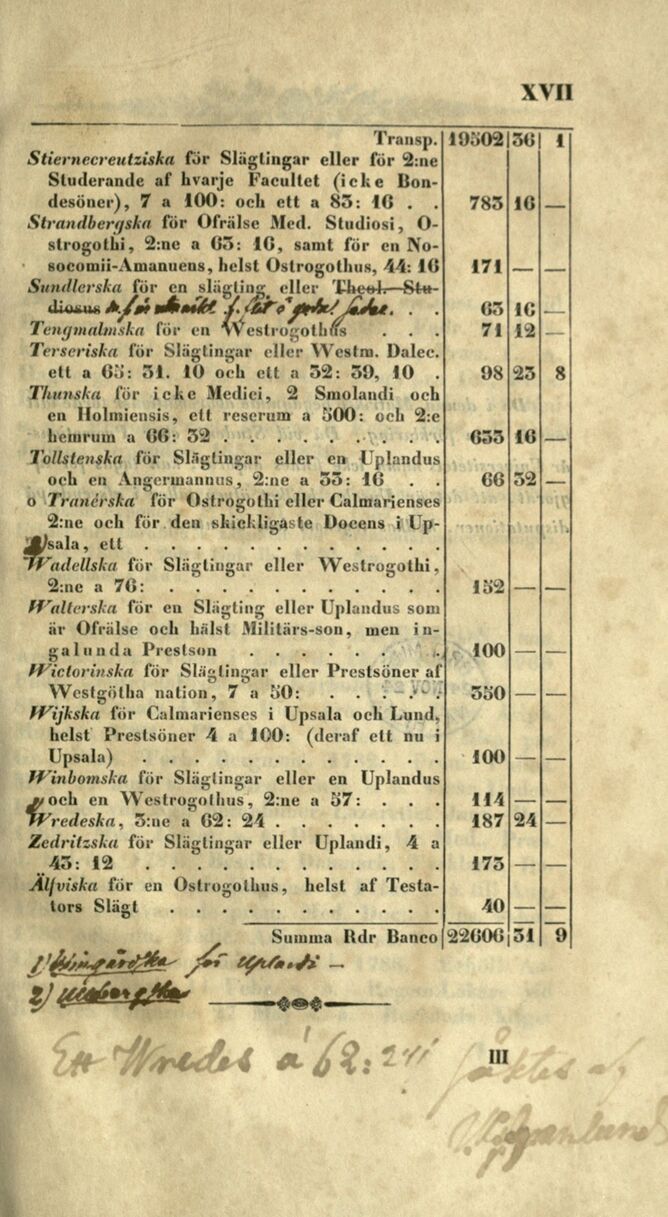 XVII
Transp. 19502 36 1
Stiernecreutziska för Slägtingar eller för 2:ne
Studerande af hvarje Facultet (icke Bon-
desöner), 7 a 100: och ett a 83: 16 . . 783 16 —
Strandbergska för Ofrälse Med. Studiosi, O-
strogothi, 2:ne a 63: 16, samt för en No-
socomii-Amanuens, helst Ostrogothus, 44: 16 171 — —
Sundlerska för en slägting eller Theol. Stu-
diosus . . 63 16 —
Tengmalmska för en Westrogothus . . . 71 12 —
Terseriska för Slägtingar eller Westm. Dalec.
ett a 65: 31. 10 och ett a 32: 39, 10 . 98 23 8
Thunska för icke Medici, 2 Smolandi och
en Holmiensis, ett reserum a 500: och 2:e
hemrum a 66: 32 . . . . . . . . . 633 16 —
Tollstenska för Slägtingar eller en Uplandus
och en Angermannus, 2:ne a 33: 16 . . 66 32 —
o Tranérska för Ostrogothi eller Calmarienses
2:ne och för den skickligaste Docens i Up-
sala, ett . . . . . . . . . . . .
Wadellska för Slägtingar eller Westrogothi,
2:ne a 76: . . . . . . . . . . . 152 — —
Walterska för en Slägting eller Uplandus som
är Ofrälse och hälst Militärs-son, men in-
galunda Prestson . . . . . . . 100 — —
Wictorinska för Slägtingar eller Prestsöner af
Westgötha nation, 7 a 50: . . . . . 350 — —
Wijkska för Calmarienses i Upsala och Lund,
helst Prestsöner 4 a 100: (deraf ett nu i
Upsala) . . . . . . . . . . . . 100 — —
Winbomska för Slägtingar eller en Uplandus
och en Westrogothus, 2:ne a 57: . . . 114 — —
Wredeska, 3:ne a 62: 24 . . . . . . . 187 24 —
Zedritzska för Slägtingar eller Uplandi, 4 a
43: 12 . . . . . . . . . . . . 173 — —
Älfviska för en Ostrogothus, helst af Testa-
tors Slägt . . . . . . . . . . . 40 — —
Summa Rdr Banco 22606 31 9
1) Wingårdska för Uplandi —
2)
III
Ett Wredes á 62: 24 sökes af